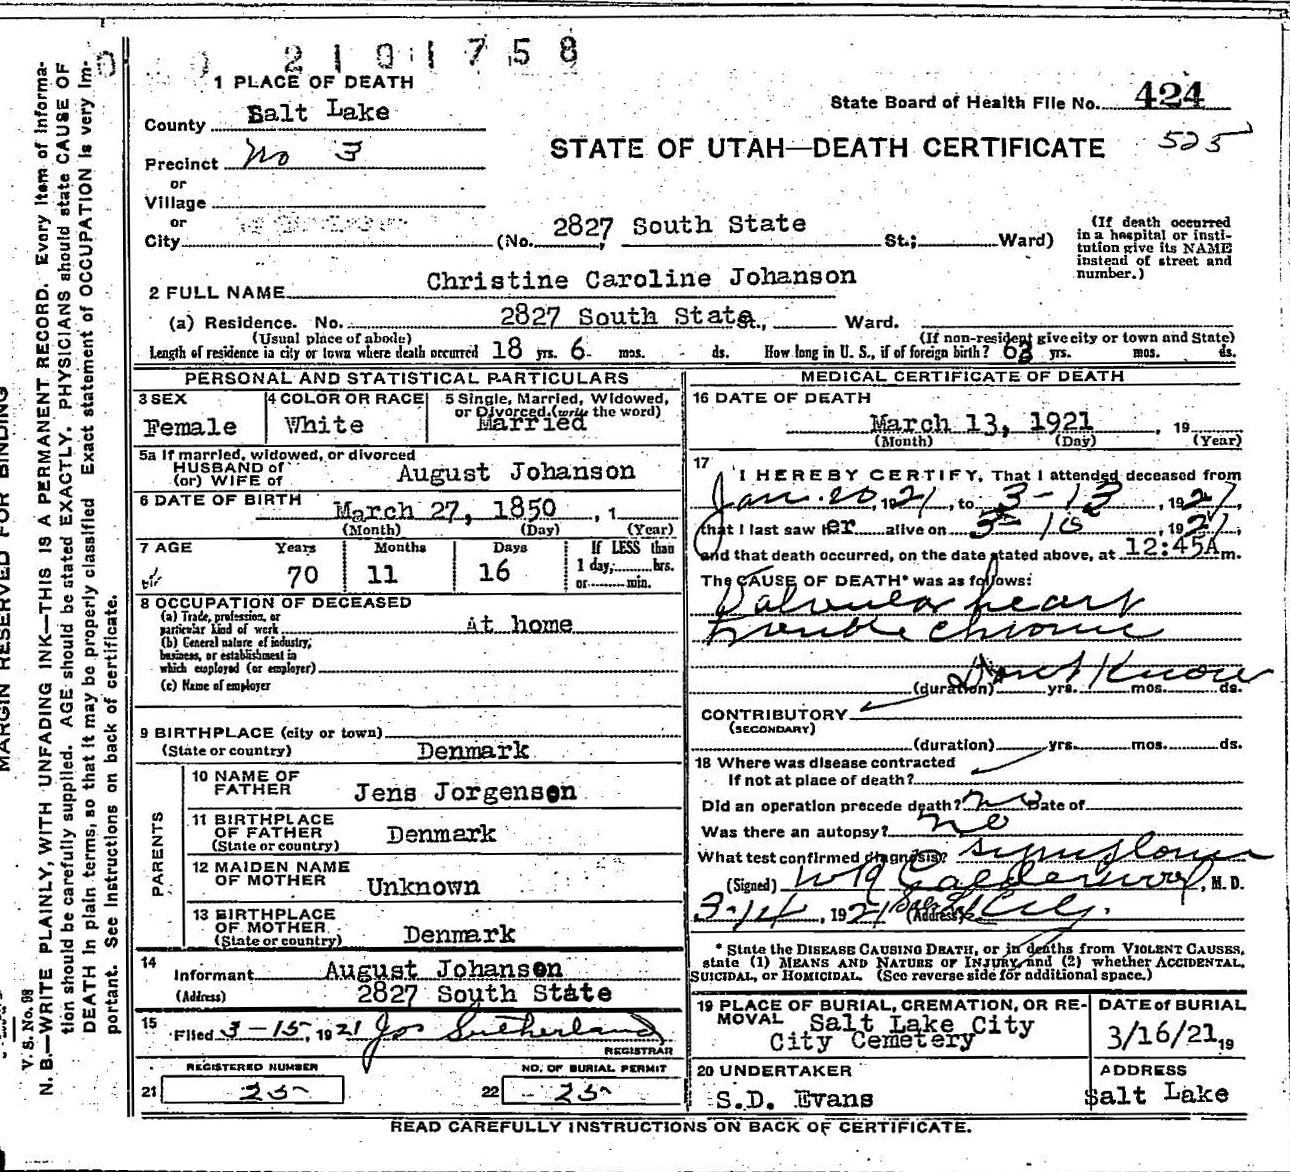 2101758
1 PLACE OF DEATH
County Salt Lake
Precinct No 3
or
Village
or
City (No. 2827 South State St.; Ward)
(If death occurred in a hospital or institution give its NAME instead of street and number.)
State Board of Health File No. 424
525
STATE OF UTAH—DEATH CERTIFICATE
2 FULL NAME Christine Caroline Johanson
(a) Residence. No. 2827 South State St., Ward.
(Usual place of abode) (If non-resident give city or town and State)
Length of residence in city or town where death occurred 18 yrs. 6 mos. ds. How long in U. S., if of foreign birth? 63 yrs. mos. ds.
PERSONAL AND STATISTICAL PARTICULARS
3 SEX
Female
4 COLOR OR RACE
White
5 Single, Married, Widowed, or Divorced (write the word)
Married
5a If married, widowed, or divorced
HUSBAND of
(or) WIFE of August Johanson
6 DATE OF BIRTH March 27, 1850, 1
(Month) (Day) (Year)
7 AGE Years Months Days If LESS than
70 11 16 1 day, hrs.
or min.
8 OCCUPATION OF DECEASED
(a) Trade, profession, or
particular kind of work At home
(b) General nature of industry,
business, or establishment in
which employed (or employer)
(c) Name of employer
9 BIRTHPLACE (city or town)
(State or country) Denmark
PARENTS
10 NAME OF
FATHER Jens Jorgenson
11 BIRTHPLACE
OF FATHER Denmark
(State or country)
12 MAIDEN NAME
OF MOTHER Unknown
13 BIRTHPLACE
OF MOTHER
(State or country) Denmark
14
Informant August Johanson
(Address) 2827 South State
15
Filed 3-15, 1921 Jos Sutherland
REGISTRAR
REGISTERED NUMBER NO. OF BURIAL PERMIT
21 25 22 25
MEDICAL CERTIFICATE OF DEATH
16 DATE OF DEATH
March 13, 1921, 19
(Month) (Day) (Year)
17
I HEREBY CERTIFY, That I attended deceased from
Jan. 20, 1921, to 3-13, 1921,
that I last saw her alive on 3-10, 1921,
and that death occurred, on the date stated above, at 12:45A m.
The CAUSE OF DEATH* was as follows:
Valvular heart
trouble chronic
(duration) Dont Know yrs. mos. ds.
CONTRIBUTORY
(SECONDARY)
(duration) yrs. mos. ds.
18 Where was disease contracted
If not at place of death?
Did an operation precede death? no Date of
Was there an autopsy? no
What test confirmed diagnosis?
(Signed) W R Calderwood, M. D.
3-14, 1921 (Address) Salt Lk City.
* State the DISEASE CAUSING DEATH, or in deaths from VIOLENT CAUSES,
state (1) MEANS AND NATURE OF INJURY, and (2) whether ACCIDENTAL,
SUICIDAL, or HOMICIDAL. (See reverse side for additional space.)
19 PLACE OF BURIAL, CREMATION, OR REMOVAL
Salt Lake City
City Cemetery
DATE of BURIAL
3/16/21, 19
20 UNDERTAKER
S.D. Evans
ADDRESS
Salt Lake
READ CAREFULLY INSTRUCTIONS ON BACK OF CERTIFICATE.
MARGIN RESERVED FOR BINDING
V. S. No. 98
N. B.—WRITE PLAINLY, WITH UNFADING INK—THIS IS A PERMANENT RECORD. Every item of information
should be carefully supplied. AGE should be stated EXACTLY. PHYSICIANS should state CAUSE OF
DEATH in plain terms, so that it may be properly classified. Exact statement of OCCUPATION is very important.
See instructions on back of certificate.